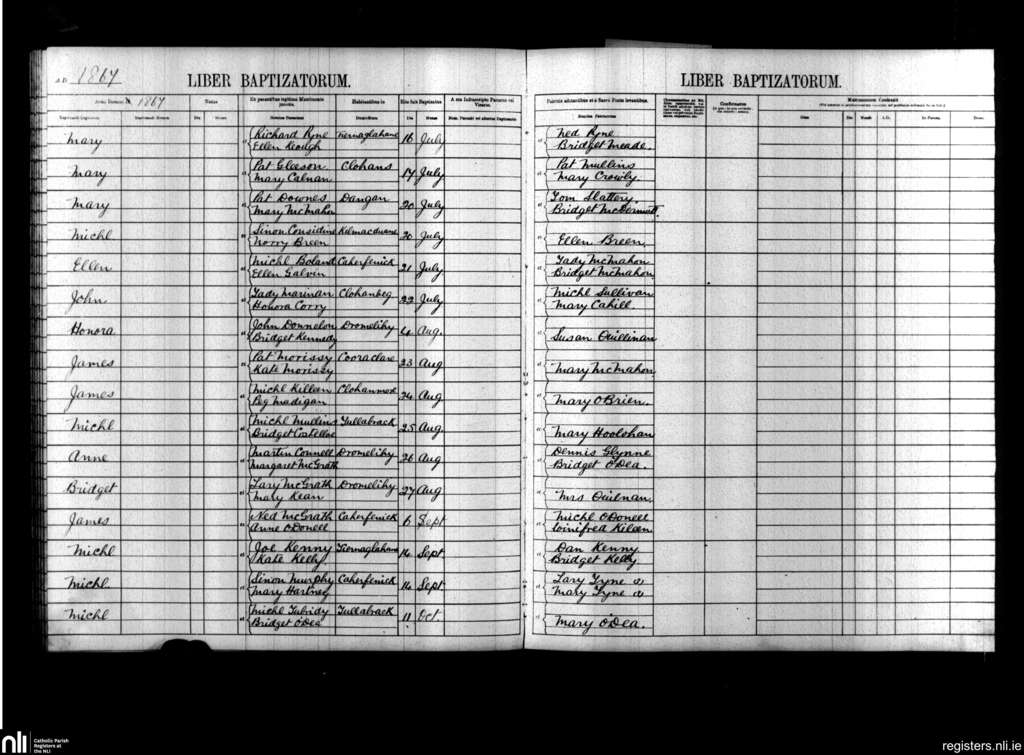 A.D. 1867
LIBER BAPTIZATORUM.
LIBER BAPTIZATORUM.
Anno Domini 1867
Natus
Ex parentibus legitimo Matrimonio junctis.
Habitantibus in
Die fuit Baptizatus
A me Infrascripto Parocho vel Vicario.
Patrinis adstantibus et e Sacro Fonte levantibus.
Confirmatus
Matrimonium Contraxit
Die
Mensis
Nomina Parentum
Domicilium
Die
Mensis
Nomina Patrinorum
Dies
Die
Mensis
A.D.
Mary Richard Ryne Tiernaglahane 16 July Ned Ryne
Ellen Keough Bridget Meade.
Mary Pat Gleeson Clohans 17 July Pat Mullins
Mary Calnan Mary Crowly.
Mary Pat Downes Dangan 20 July Tom Slattery.
Mary McMahon Bridget McDermott.
Michl Sinon Considine Kilmacduane 20 July
Norry Breen Ellen Breen.
Ellen Michl Boland Caherfenick 21 July Tady McMahon
Ellen Galvin Bridget McMahon
John Tady Marinan Clohanbeg 22 July Michl Sullivan
Honora Corry Mary Cahill.
Honora John Donnelon Dromelihy 4 Aug. Susan Quillinan
Bridget Kennedy
James Pat Morissy Cooraclare 23 Aug
Kate Morissy Mary McMahon.
James Michl Killeen Clohanmore 24 Aug
Peg Madigan Mary O'Brien.
Michl Michl Mullins Tullabrack 25 Aug
Bridget Costelloe Mary Hoolohan
Anne Martin Connell Dromelihy 26 Aug Dennis Glynne
Margaret McGrath Bridget O'Dea.
Bridget Lary McGrath Dromelihy 27 Aug
Mary Kean Mrs Quilnan.
James Ned McGrath Caherfenick 6 Sept Michl O'Donell
Anne O'Donell Winifred Kileen
Michl Joe Kenny Tiernaglahane 14 Sept Dan Kenny
Kate Kelly. Bridget Kelly
Michl. Sinon Murphy Caherfenick 14 Sept. Lary Tyne
Mary Hartney Mary Tyne
Michl Michl Tubridy Tullabrack 11 Oct.
Bridget O'Dea Mary O'Dea.
nli
Catholic Parish
Registers at
the NLI
registers.nli.ie